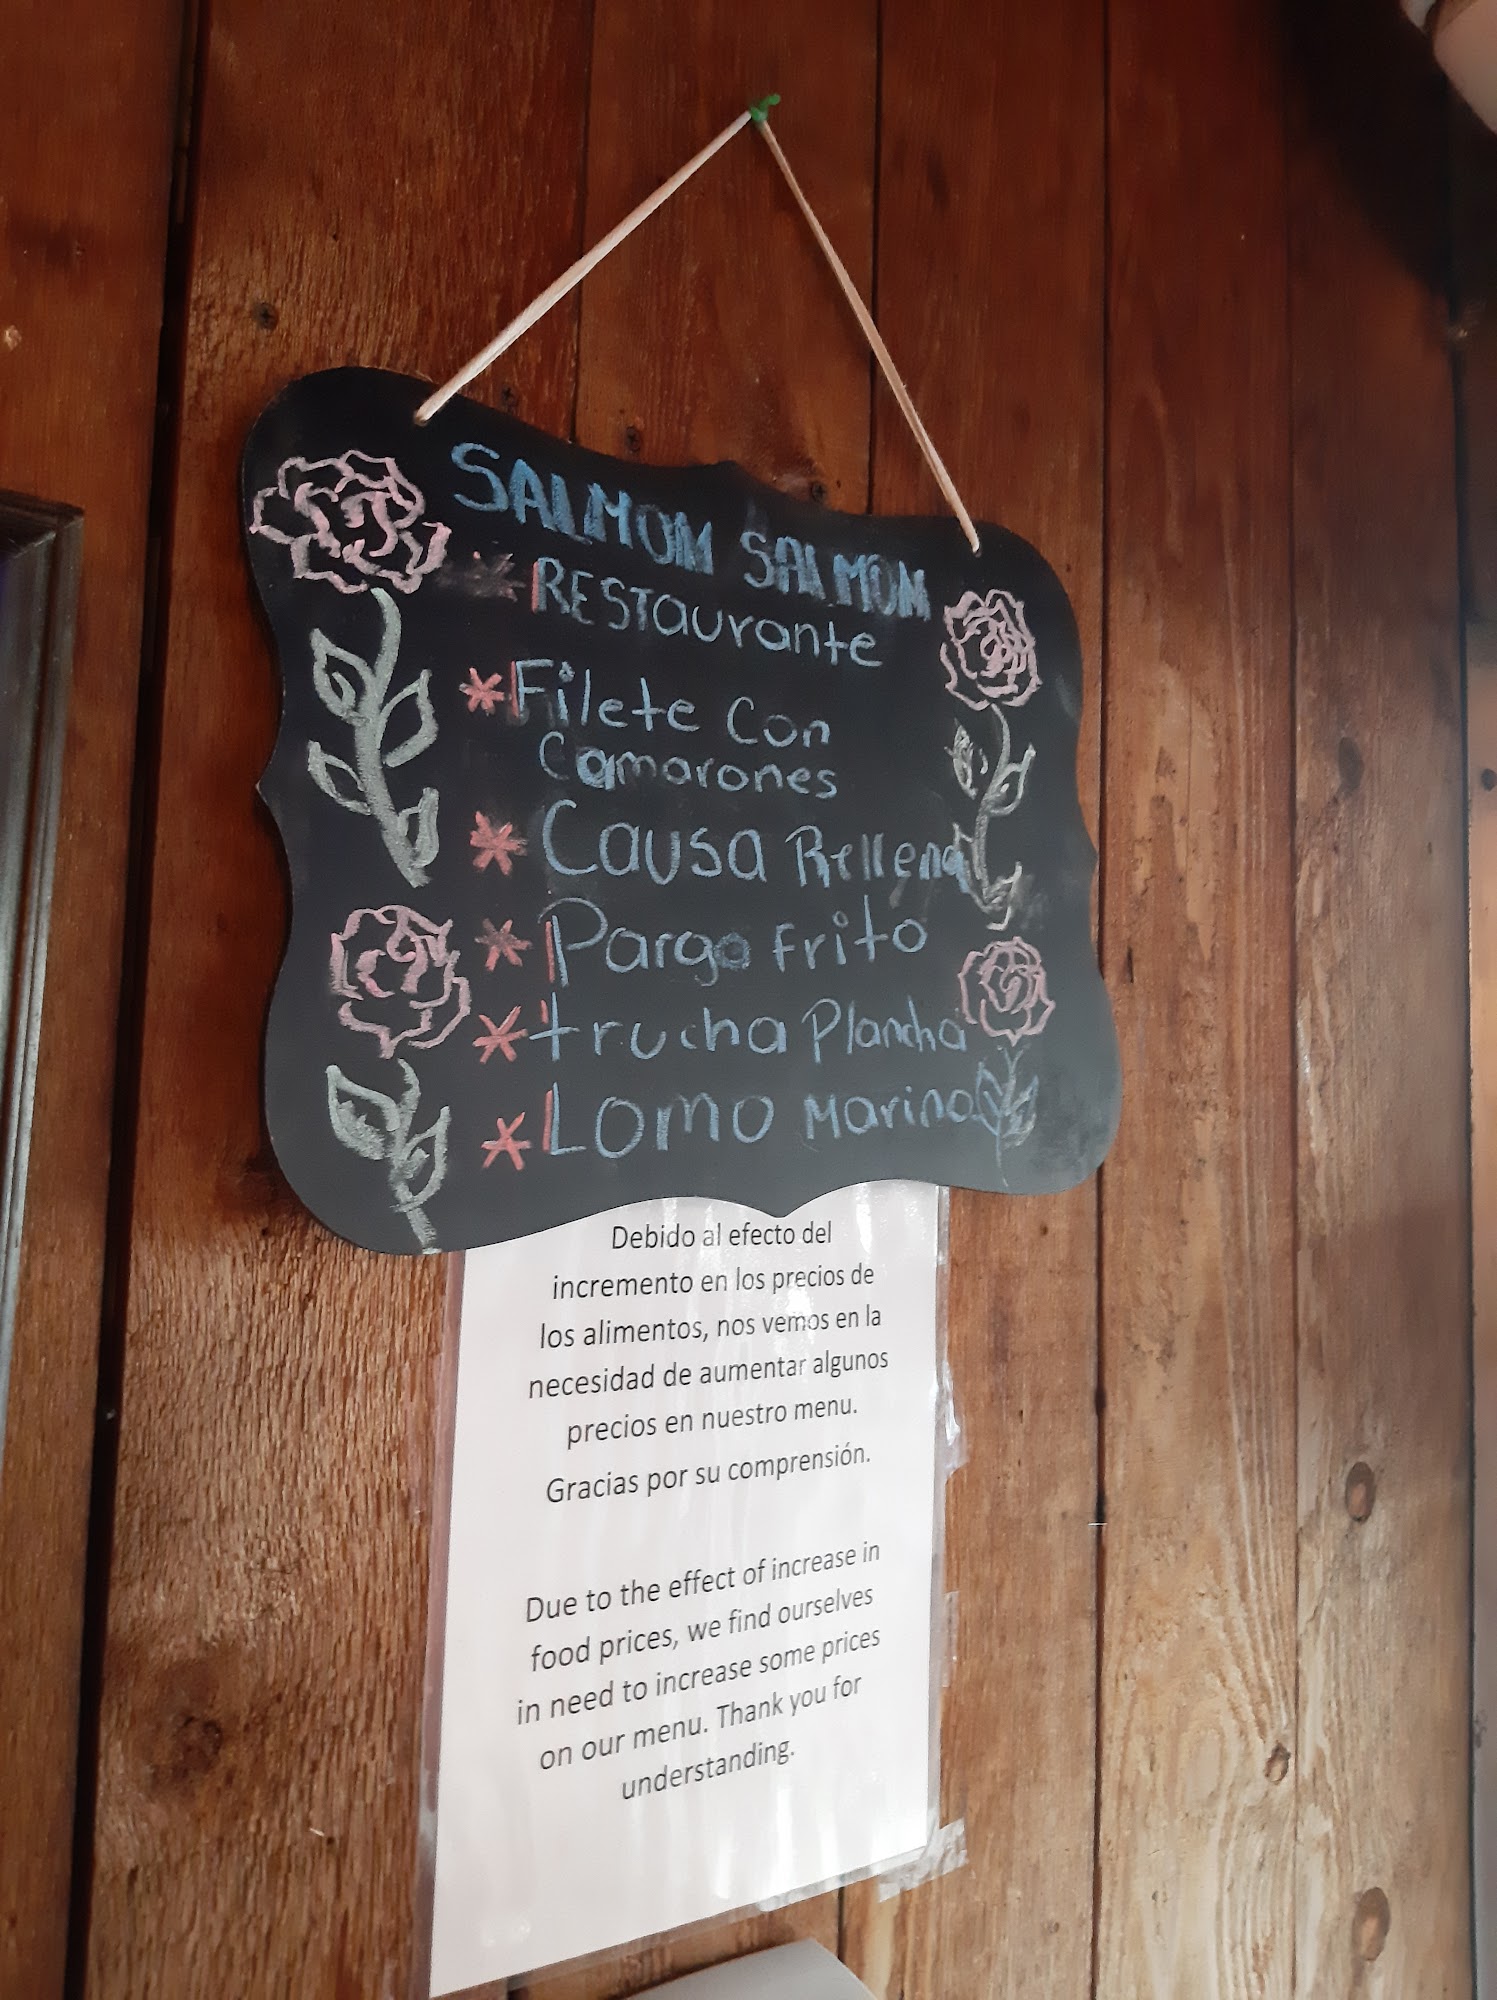 SALMON SALMON
* RESTaurante
* Filete Con
Camarones
* Causa Rellena
* Pargo Frito
* trucha Plancha
* Lomo Marino
Debido al efecto del
incremento en los precios de
los alimentos, nos vemos en la
necesidad de aumentar algunos
precios en nuestro menu.
Gracias por su comprensión.
Due to the effect of increase in
food prices, we find ourselves
in need to increase some prices
on our menu. Thank you for
understanding.